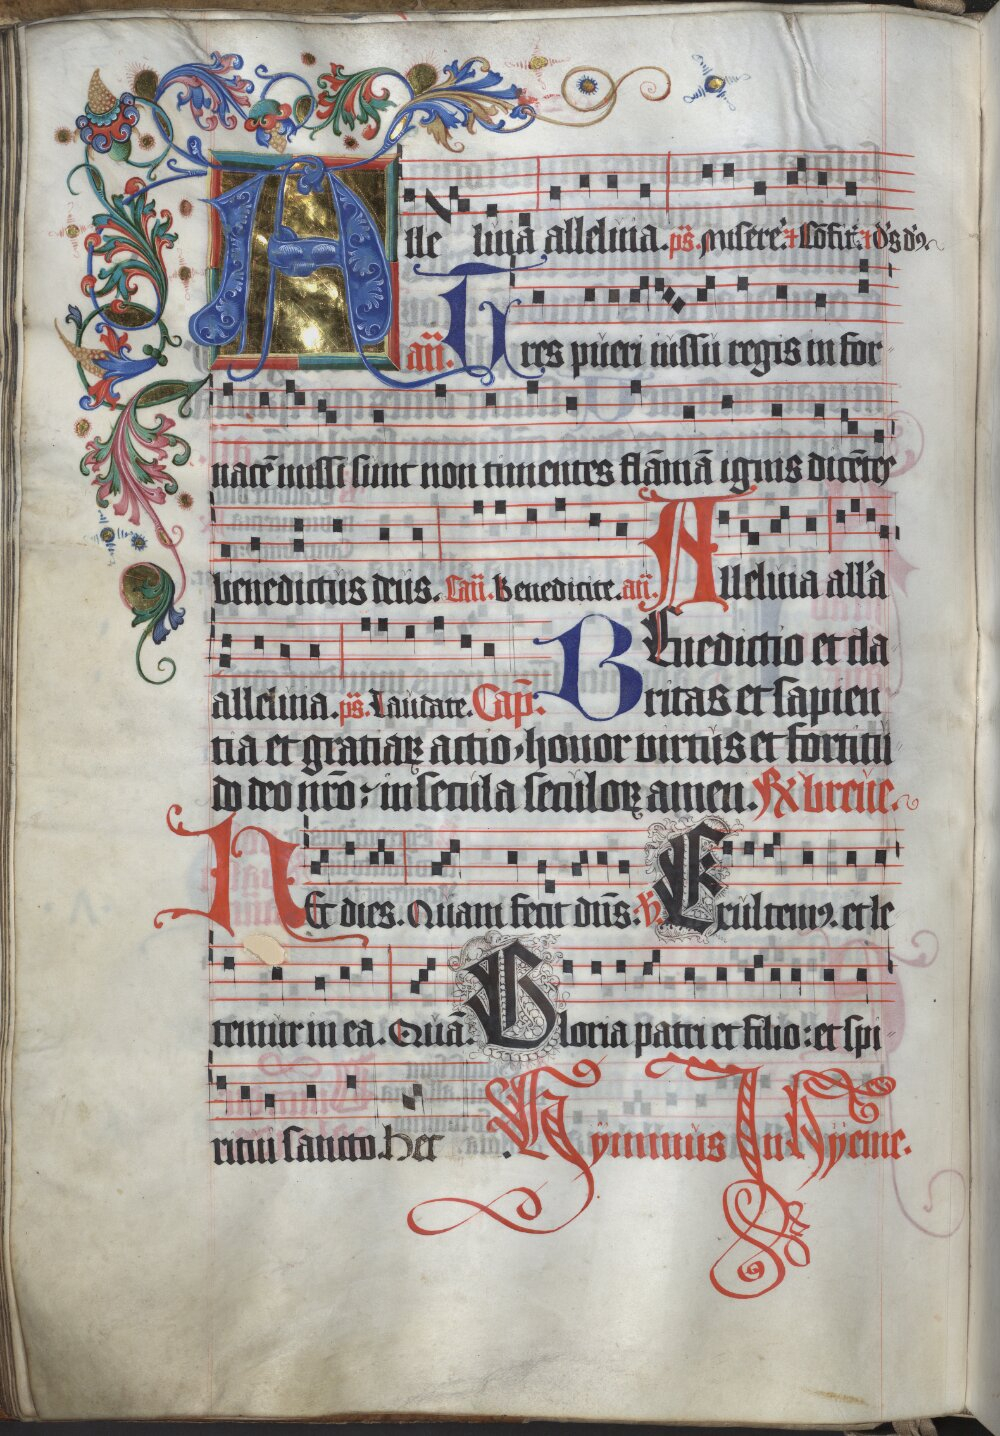 Alle luia alleluia. ps. Misere. Confit. Ds ds.
an. Tres pueri iussu regis in for
nace missi sunt non timentes flāmā ignis dicētes
benedictus deus. Lau. Benedicite. an. Alleluia all'a
alleluia. ps. Laudate. Cap. Benedictio et cla
ritas et sapien
tia et gratiaꝝ actio, honor virtus et fortitu
do deo nr̄o: in secula seculoꝝ amen. Rx breue.
HEc dies. Quam fecit dn̄s. Exultemꝰ. et le
temur in ea. Quā. Gloria patri et filio: et spi
ritui sancto. Hec. Hymnus In Hyeme.